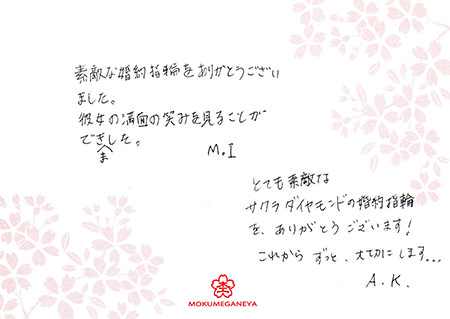 素敵な婚約指輪をありがとうござい
ました。
彼女の満面の笑みを見ることが
できました。
M.I
とても素敵な
サクラダイヤモンドの婚約指輪
を、ありがとうございます!
これからずっと、大切にします...
A.K.
MOKUMEGANEYA